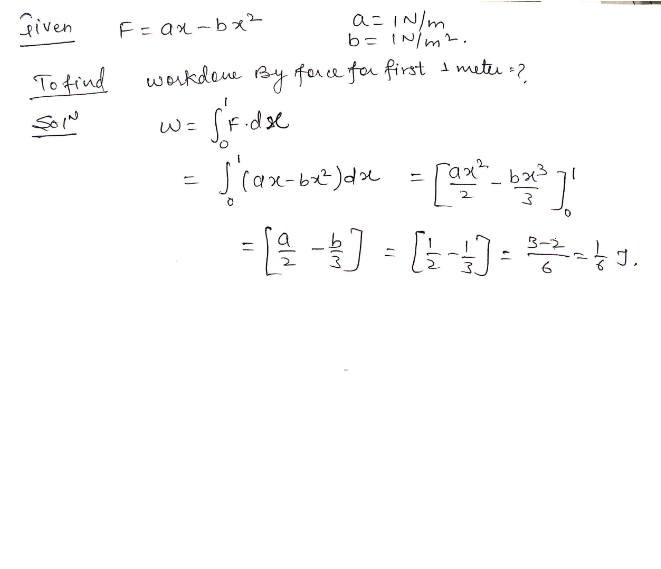 Given F = ax - bx² a = 1 N/m
b = 1 N/m².
To find workdone By force for first 1 meter = ?
Solⁿ W = ∫₀¹ F.dx
= ∫₀¹ (ax - bx²)dx = [ax²/2 - bx³/3]₀¹
= [a/2 - b/3] = [1/2 - 1/3] = 3-2/6 = 1/6 J.